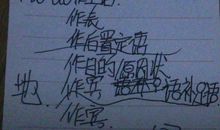 作表
作后置定语
作目的原因状
作宾 语补足语
地、
作宾